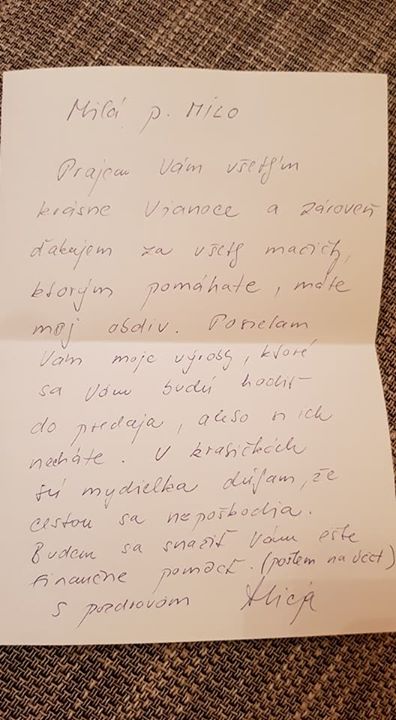 Milá p. MILO
Prajem Vám všetkým
krásne Vianoce a zároveň
ďakujem za všetky mačičky,
ktorým pomáhate, máte
moj obdiv. Posielam
Vám moje výrobky, ktoré
sa Vám budú hodiť
do predaja, alebo si ich
necháte. V krabičkách
sú mydielka dúfam, že
cestou sa nepoškodia.
Budem sa snažiť Vám ešte
finančne pomôcť. (pošlem na účet)
S pozdravom Alicja